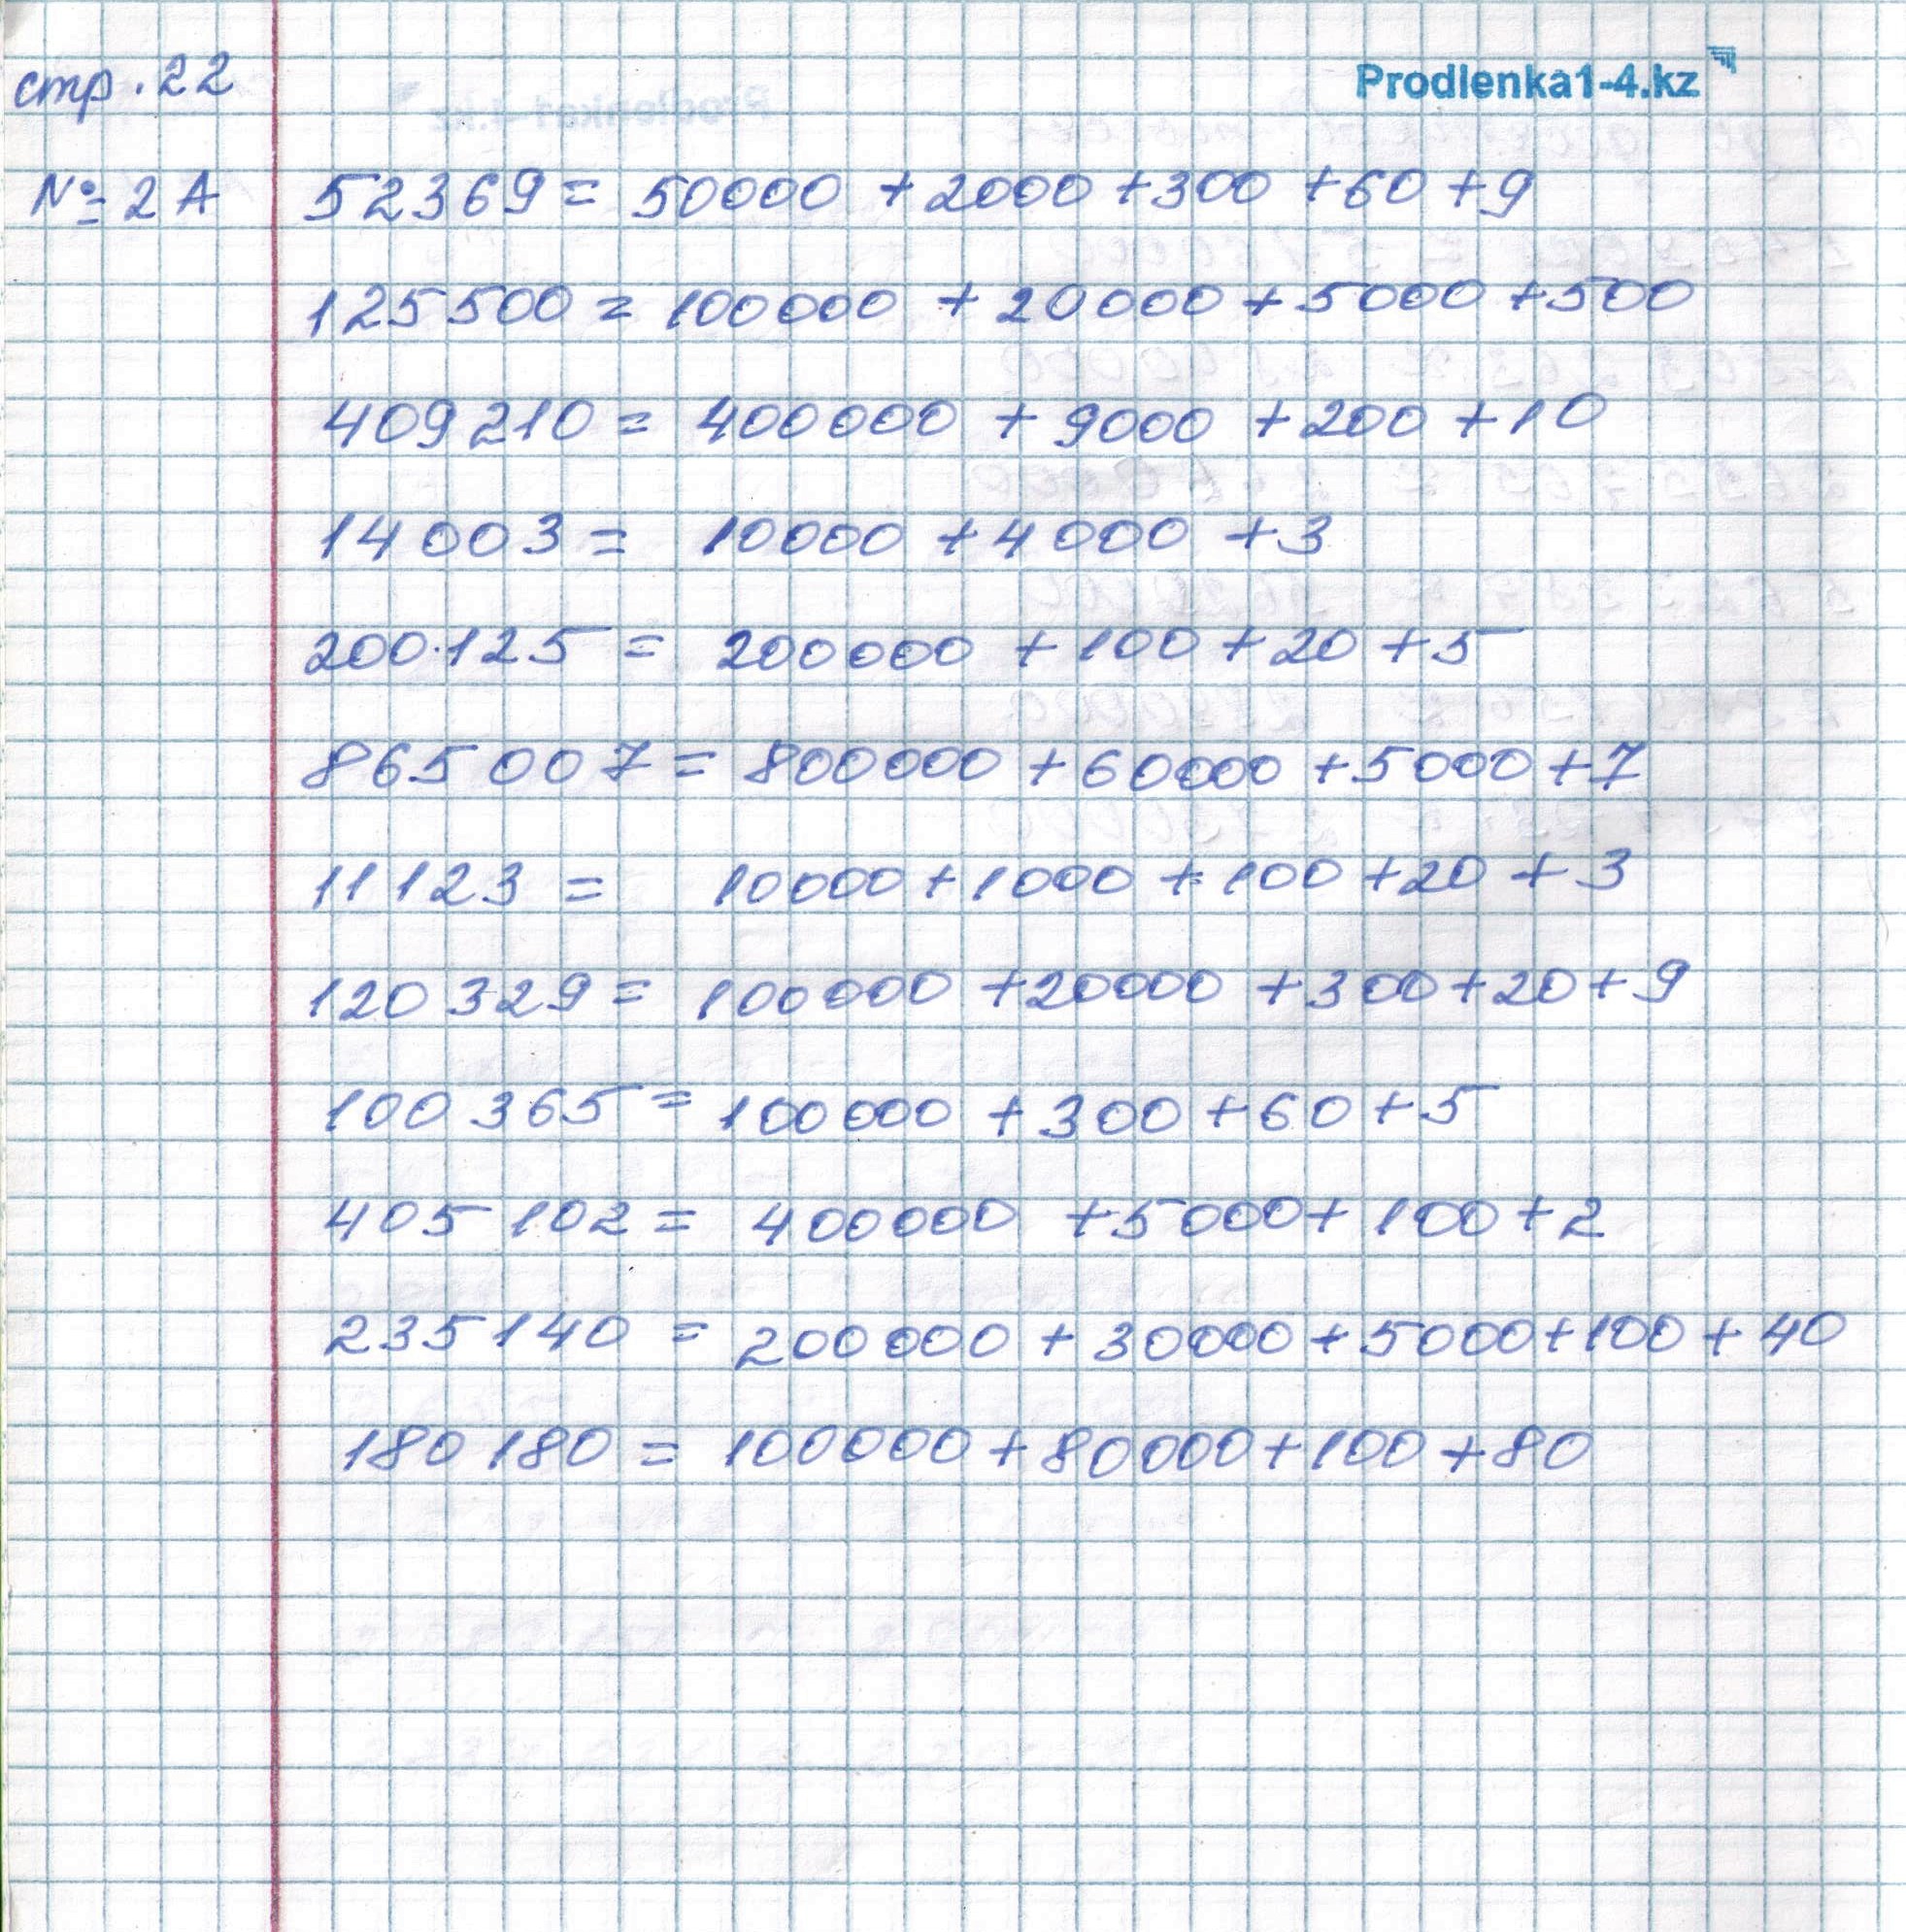 стр. 22
Prodlenka1-4.kz
№ 2 А 52369 = 50000 + 2000 + 300 + 60 + 9
125 500 = 100 000 + 20 000 + 5000 + 500
409 210 = 400 000 + 9000 + 200 + 10
14 003 = 10000 + 4 000 + 3
200.125 = 200000 + 100 + 20 + 5
865 007 = 800000 + 60000 + 5000 + 7
11 123 = 10000 + 1000 + 100 + 20 + 3
120 329 = 100000 + 20000 + 300 + 20 + 9
100 365 = 100 000 + 300 + 60 + 5
405 102 = 400000 + 5000 + 100 + 2
235 140 = 200 000 + 30000 + 5000 + 100 + 40
180 180 = 100000 + 80000 + 100 + 80